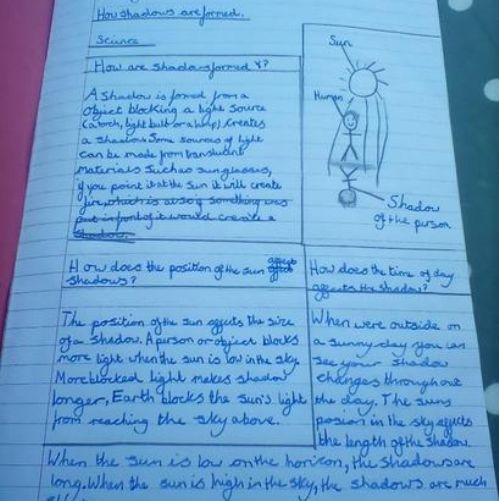 How shadows are formed.
Science
How are shadows formed?
A Shadow is formed from a
object blocking a light source
(a torch, light bulb or a lamp) creates
a shadow. Some sources of light
can be made from translucent
materials Such as sunglasses,
if you point it at the Sun it will create
fire, which is also if something was
put in front of it would create a
shadow.
Sun
Human
Shadow
of the person
How does the position of the sun affect
shadows?
The position of the sun affects the size
of a shadow. A person or object blocks
more light when the sun is low in the sky.
More blocked light makes shadow
longer, Earth blocks the sun's light
from reaching the sky above.
How does the time of day
affects the shadow?
When were outside on
a sunny day you can
see your shadow
changes throughout
the day. The suns
posion in the sky affects
the length of the shadow.
When the sun is low on the horizon, the shadows are
long. When the sun is high in the sky, the shadows are much